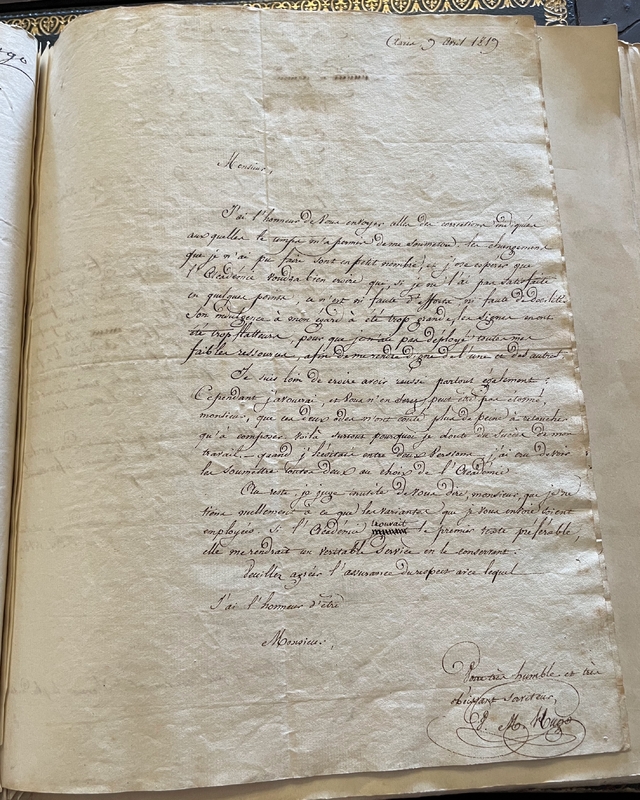 ugo
Paris, 9 avril 1819
Monsieur,
J'ai l'honneur de vous envoyer celles des corrections indiquées
auxquelles le temps m'a permis de me soumettre. les changements
que je n'ai pu faire sont en petit nombre, et j'ose espérer que
l'Académie voudra bien croire que, si je ne l'ai pas satisfaite
en quelque point, ce n'est ni faute d'efforts ni faute de docilité.
Son indulgence à mon égard a été trop grande, ses signes m'ont
été trop flatteurs, pour que je n'aie pas déployé toutes mes
faibles ressources, afin de me rendre digne de l'une et des autres.
Je suis loin de croire avoir réussi partout également ;
Cependant j'avouerai, et vous n'en serez peut être pas étonné,
monsieur, que ces deux odes m'ont coûté plus de peine à retoucher
qu'à composer. voilà surtout pourquoi je doute du succès de mon
travail. – quand j'hésitais entre deux versions, j'ai cru devoir
les soumettre toutes deux au choix de l'Académie.
Au reste, je juge inutile de vous dire, monsieur, que je ne
tiens nullement à ce que les variantes que je vous envoie soient
employées. Si l'Académie trouvait le premier texte préférable,
elle me rendrait un véritable service en le conservant.
Veuillez agréer l'assurance du respect avec lequel
J'ai l'honneur d'être
Monsieur,
Votre très humble et très
obéissant serviteur,
V. M. Hugo